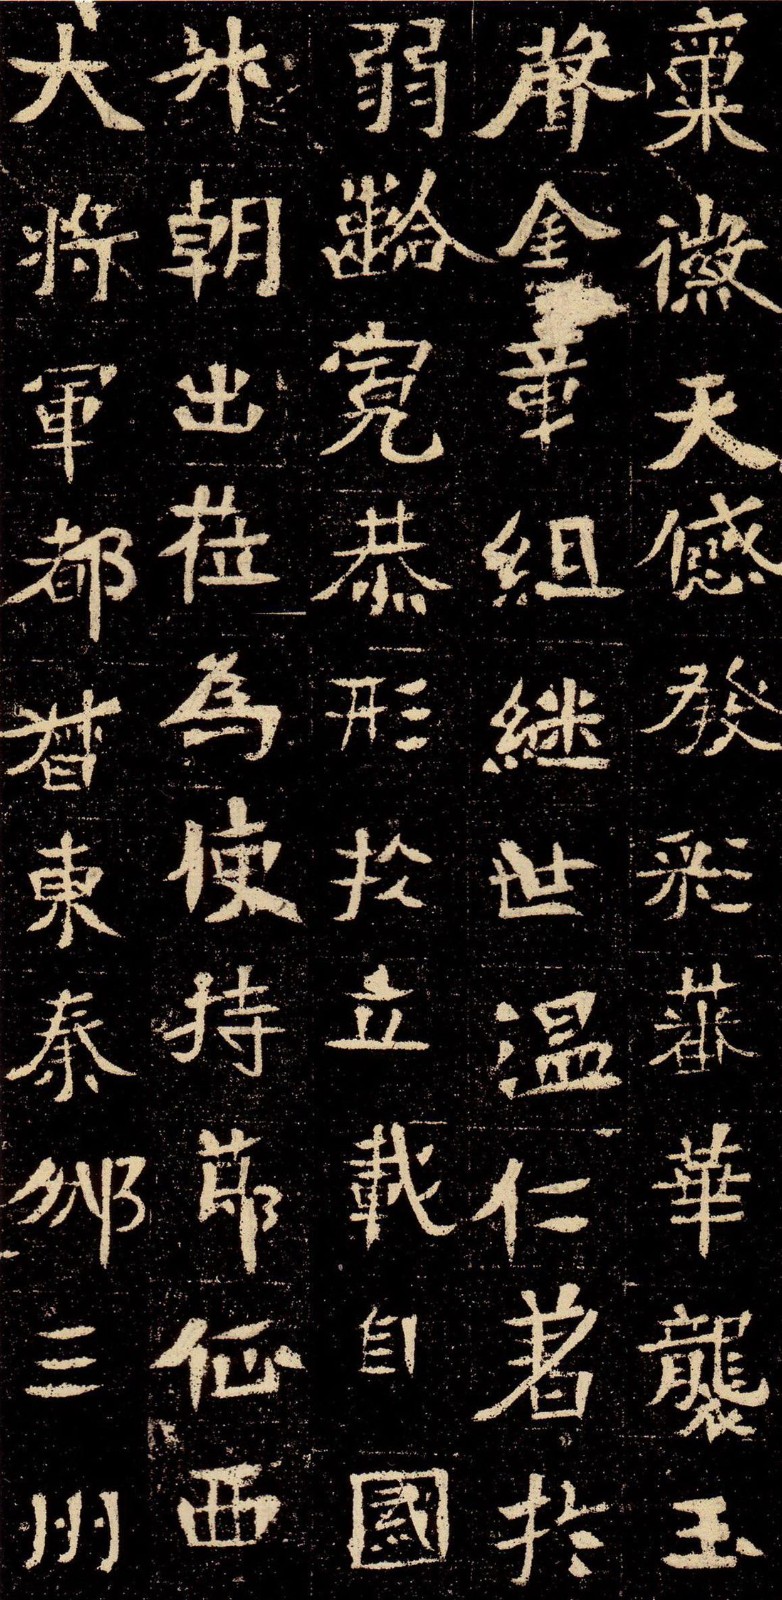 稟徽天感發彩蕃華襲玉
聲金章組継世温仁著扵
弱齡寛恭形扵立載自國
升朝出莅為使持莭征西
大將軍都督東秦邠三州